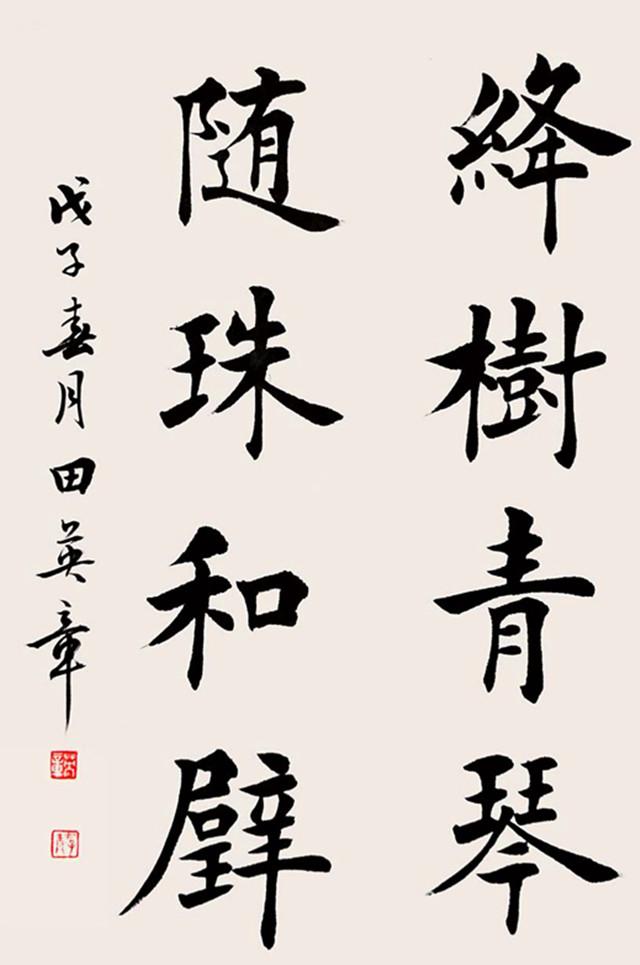 絳樹青琴
随珠和璧
戊子春月田英章